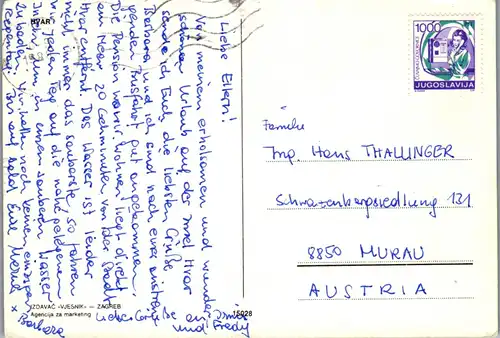 HVAR
Liebe Eltern!
Von meinem erholsamen und wunder-
schönen Urlaub auf der Insel Hvar
sende ich Euch die liebsten Grüße.
Barbara und ich sind nach einer anstren-
genden Busfahrt gut angekommen.
Die Pension wo wir wohnen liegt direkt
am Meer 20 Gehminuten von der Stadt
Hvar entfernt. Das Wasser ist leider
nicht immer das sauberste, so fahren
wir jeden Tag auf die nahe gelegenen
Inseln um in einem sauberen Wasser
zu baden. Wir hatten noch keinen einzigen
Regentag. Bis auf bald Eure
x Barbara
Liebe Grüße an
und Fredy
IZDAVAČ «VJESNIK» — ZAGREB
Agencija za marketing
15028
1000
JUGOSLAVIJA
Familie
Ing. Hans THALLINGER
Schwarzenbergsiedlung 131
8850 MURAU
AUSTRIA